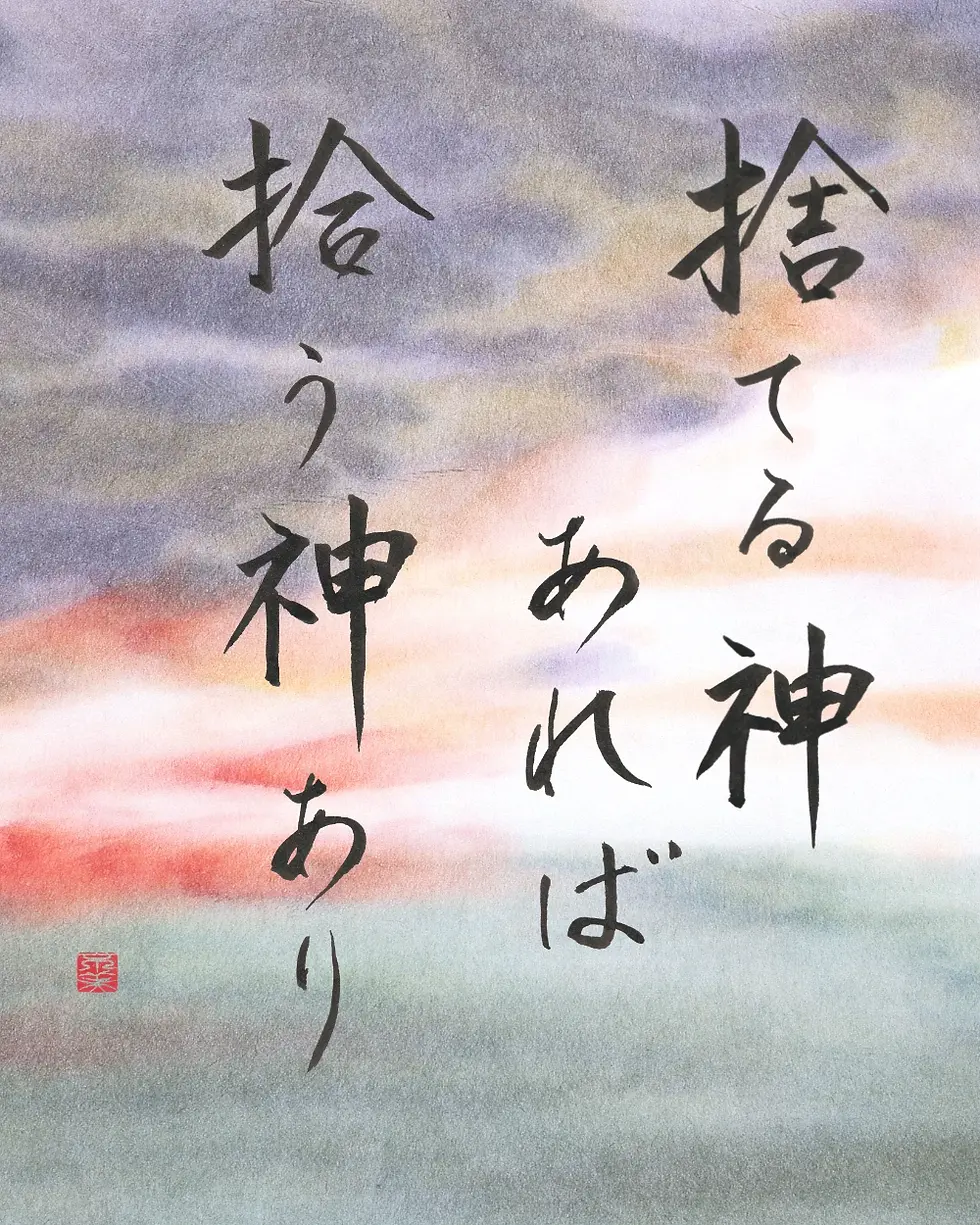 捨てる神
あれば
拾う神あり